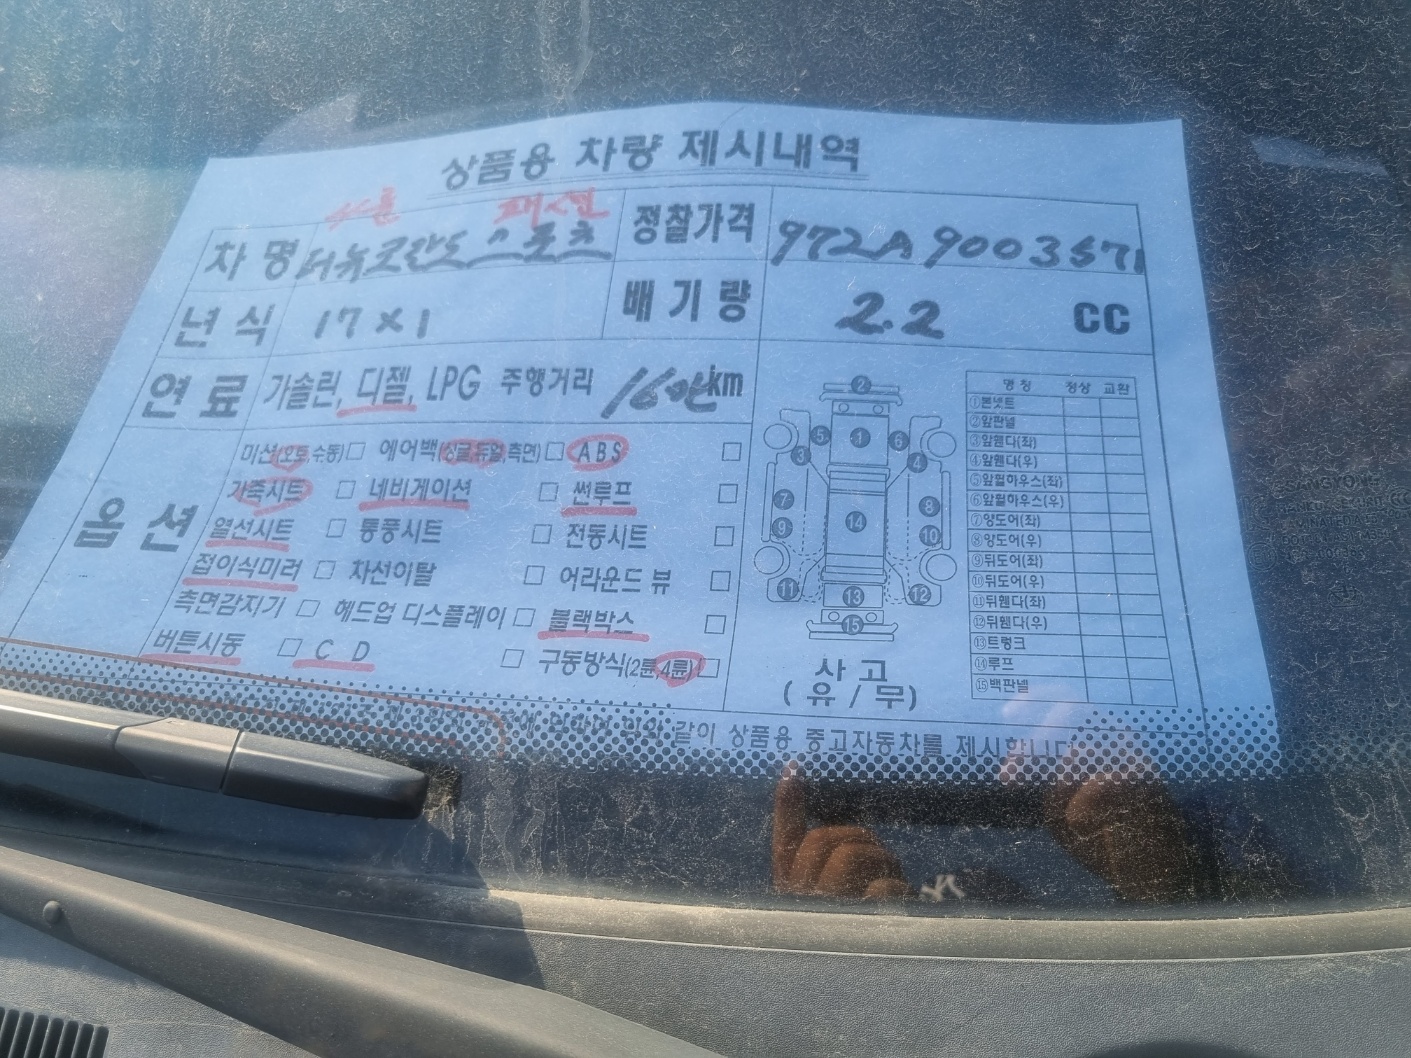 상품용 차량 제시내역
4륜 패션
차 명 더뉴코란도스포츠 정찰가격 972A9003571
년 식 17×1 배기량 2.2 CC
연 료 가솔린, 디젤, LPG 주행거리 16만km
옵 션
미션(오토,수동)□ 에어백(싱글,듀얼,측면)□ ABS □
가죽시트 □ 네비게이션 □ 썬루프 □
열선시트 □ 통풍시트 □ 전동시트 □
접이식미러 □ 차선이탈 □ 어라운드 뷰 □
측면감지기 □ 헤드업 디스플레이 □ 블랙박스 □
버튼시동 □ C D □ 구동방식(2륜,4륜)□
2
5 1 6
3 4
7 14 8
9 10
11 13 12
15
사 고
( 유 / 무 )
명 칭 정상 교환
①본넷트
②앞판넬
③앞휀다(좌)
④앞휀다(우)
⑤앞휠하우스(좌)
⑥앞휠하우스(우)
⑦앞도어(좌)
⑧앞도어(우)
⑨뒤도어(좌)
⑩뒤도어(우)
⑪뒤휀다(좌)
⑫뒤휀다(우)
⑬트렁크
⑭루프
⑮백판넬
같이 상품용 중고자동차를 제시합니다